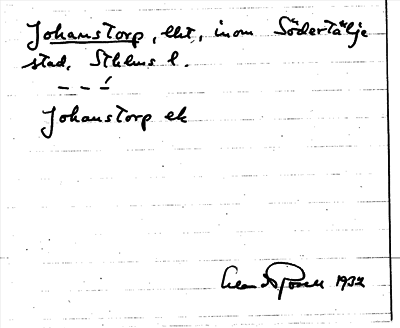 Johanstorp, lht, inom Södertälje
stad, Sthlms l.
– – –́
Johanstorp ek
1932